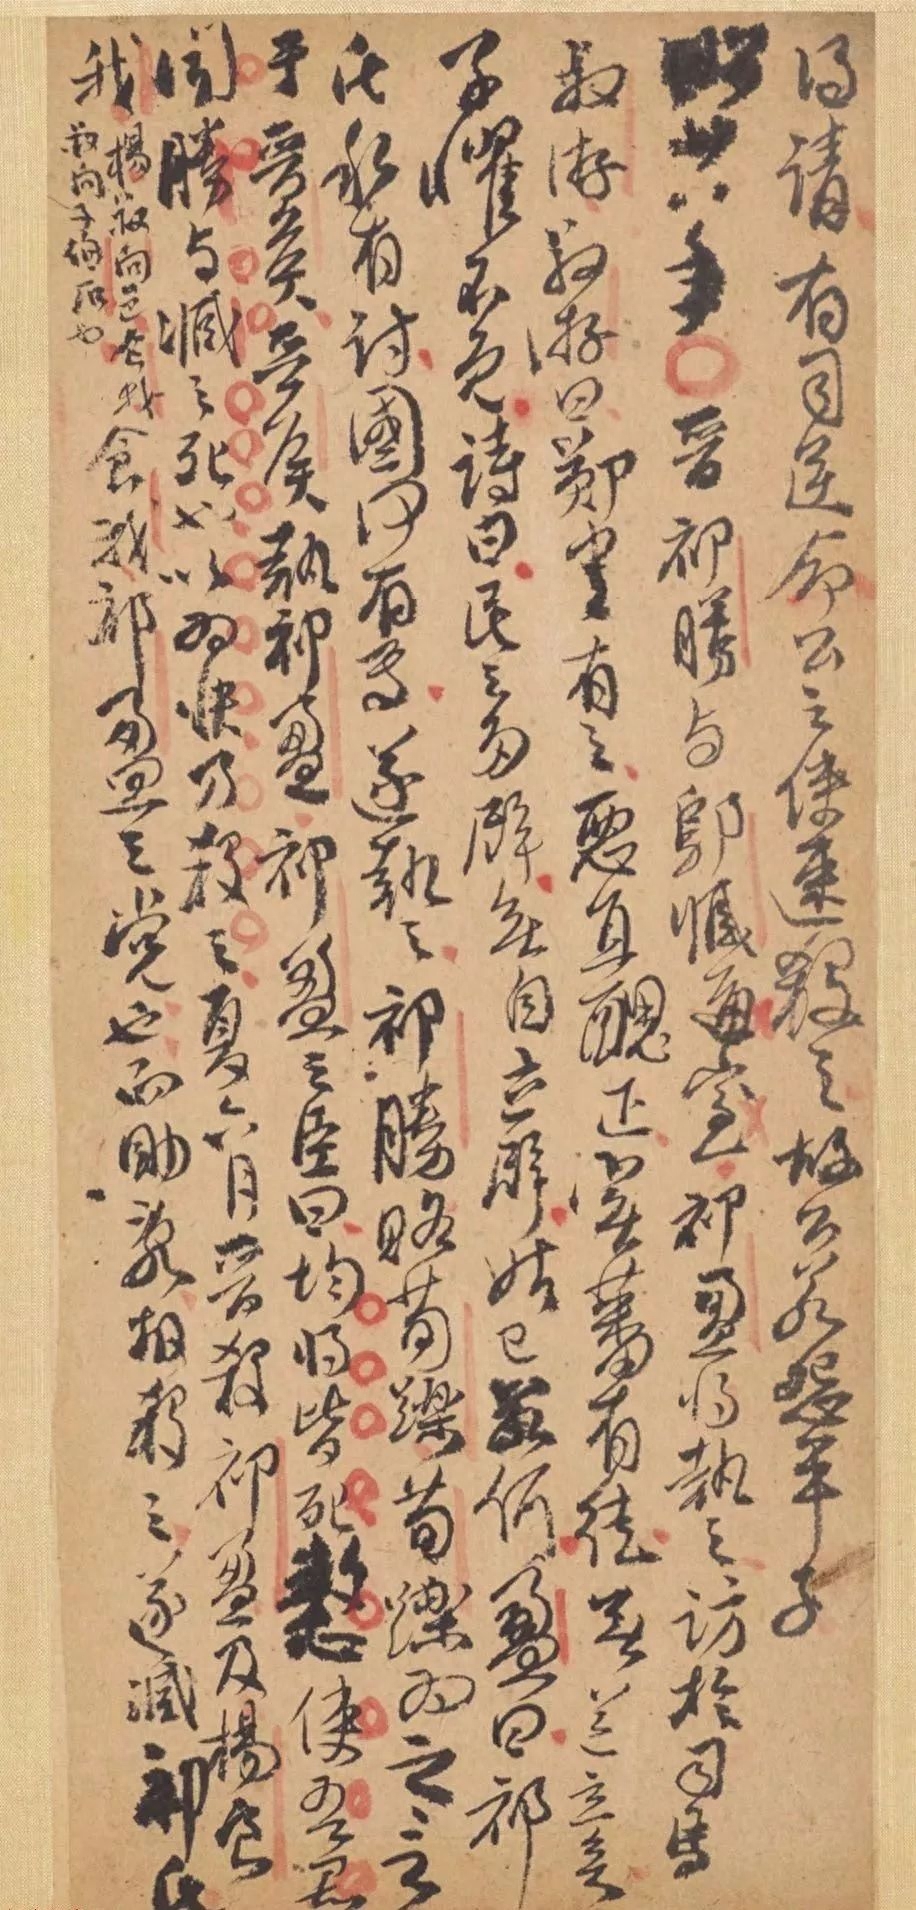 得請有司逆命公之使速殺之故公若怨平子
昭廿八年晉祁勝与鄔臧通室祁盈将執之訪於司馬
叔游叔游曰鄭書有之惡直醜正實蕃有徒無道立矣
子懼不免詩曰民之多辟無自立辟姑已若何盈曰祁
氏私有討國何有焉遂執之祁勝賂荀躒荀躒為之言
于晉矦晉矦執祁盈祁盈之臣曰均将皆死憖使吾君
聞勝与臧之死也以為快乃殺之夏六月晉殺祁盈及楊食
我楊叔向邑食我
叔向子伯石也
食我祁盈之党也而助亂故殺之遂滅祁氏